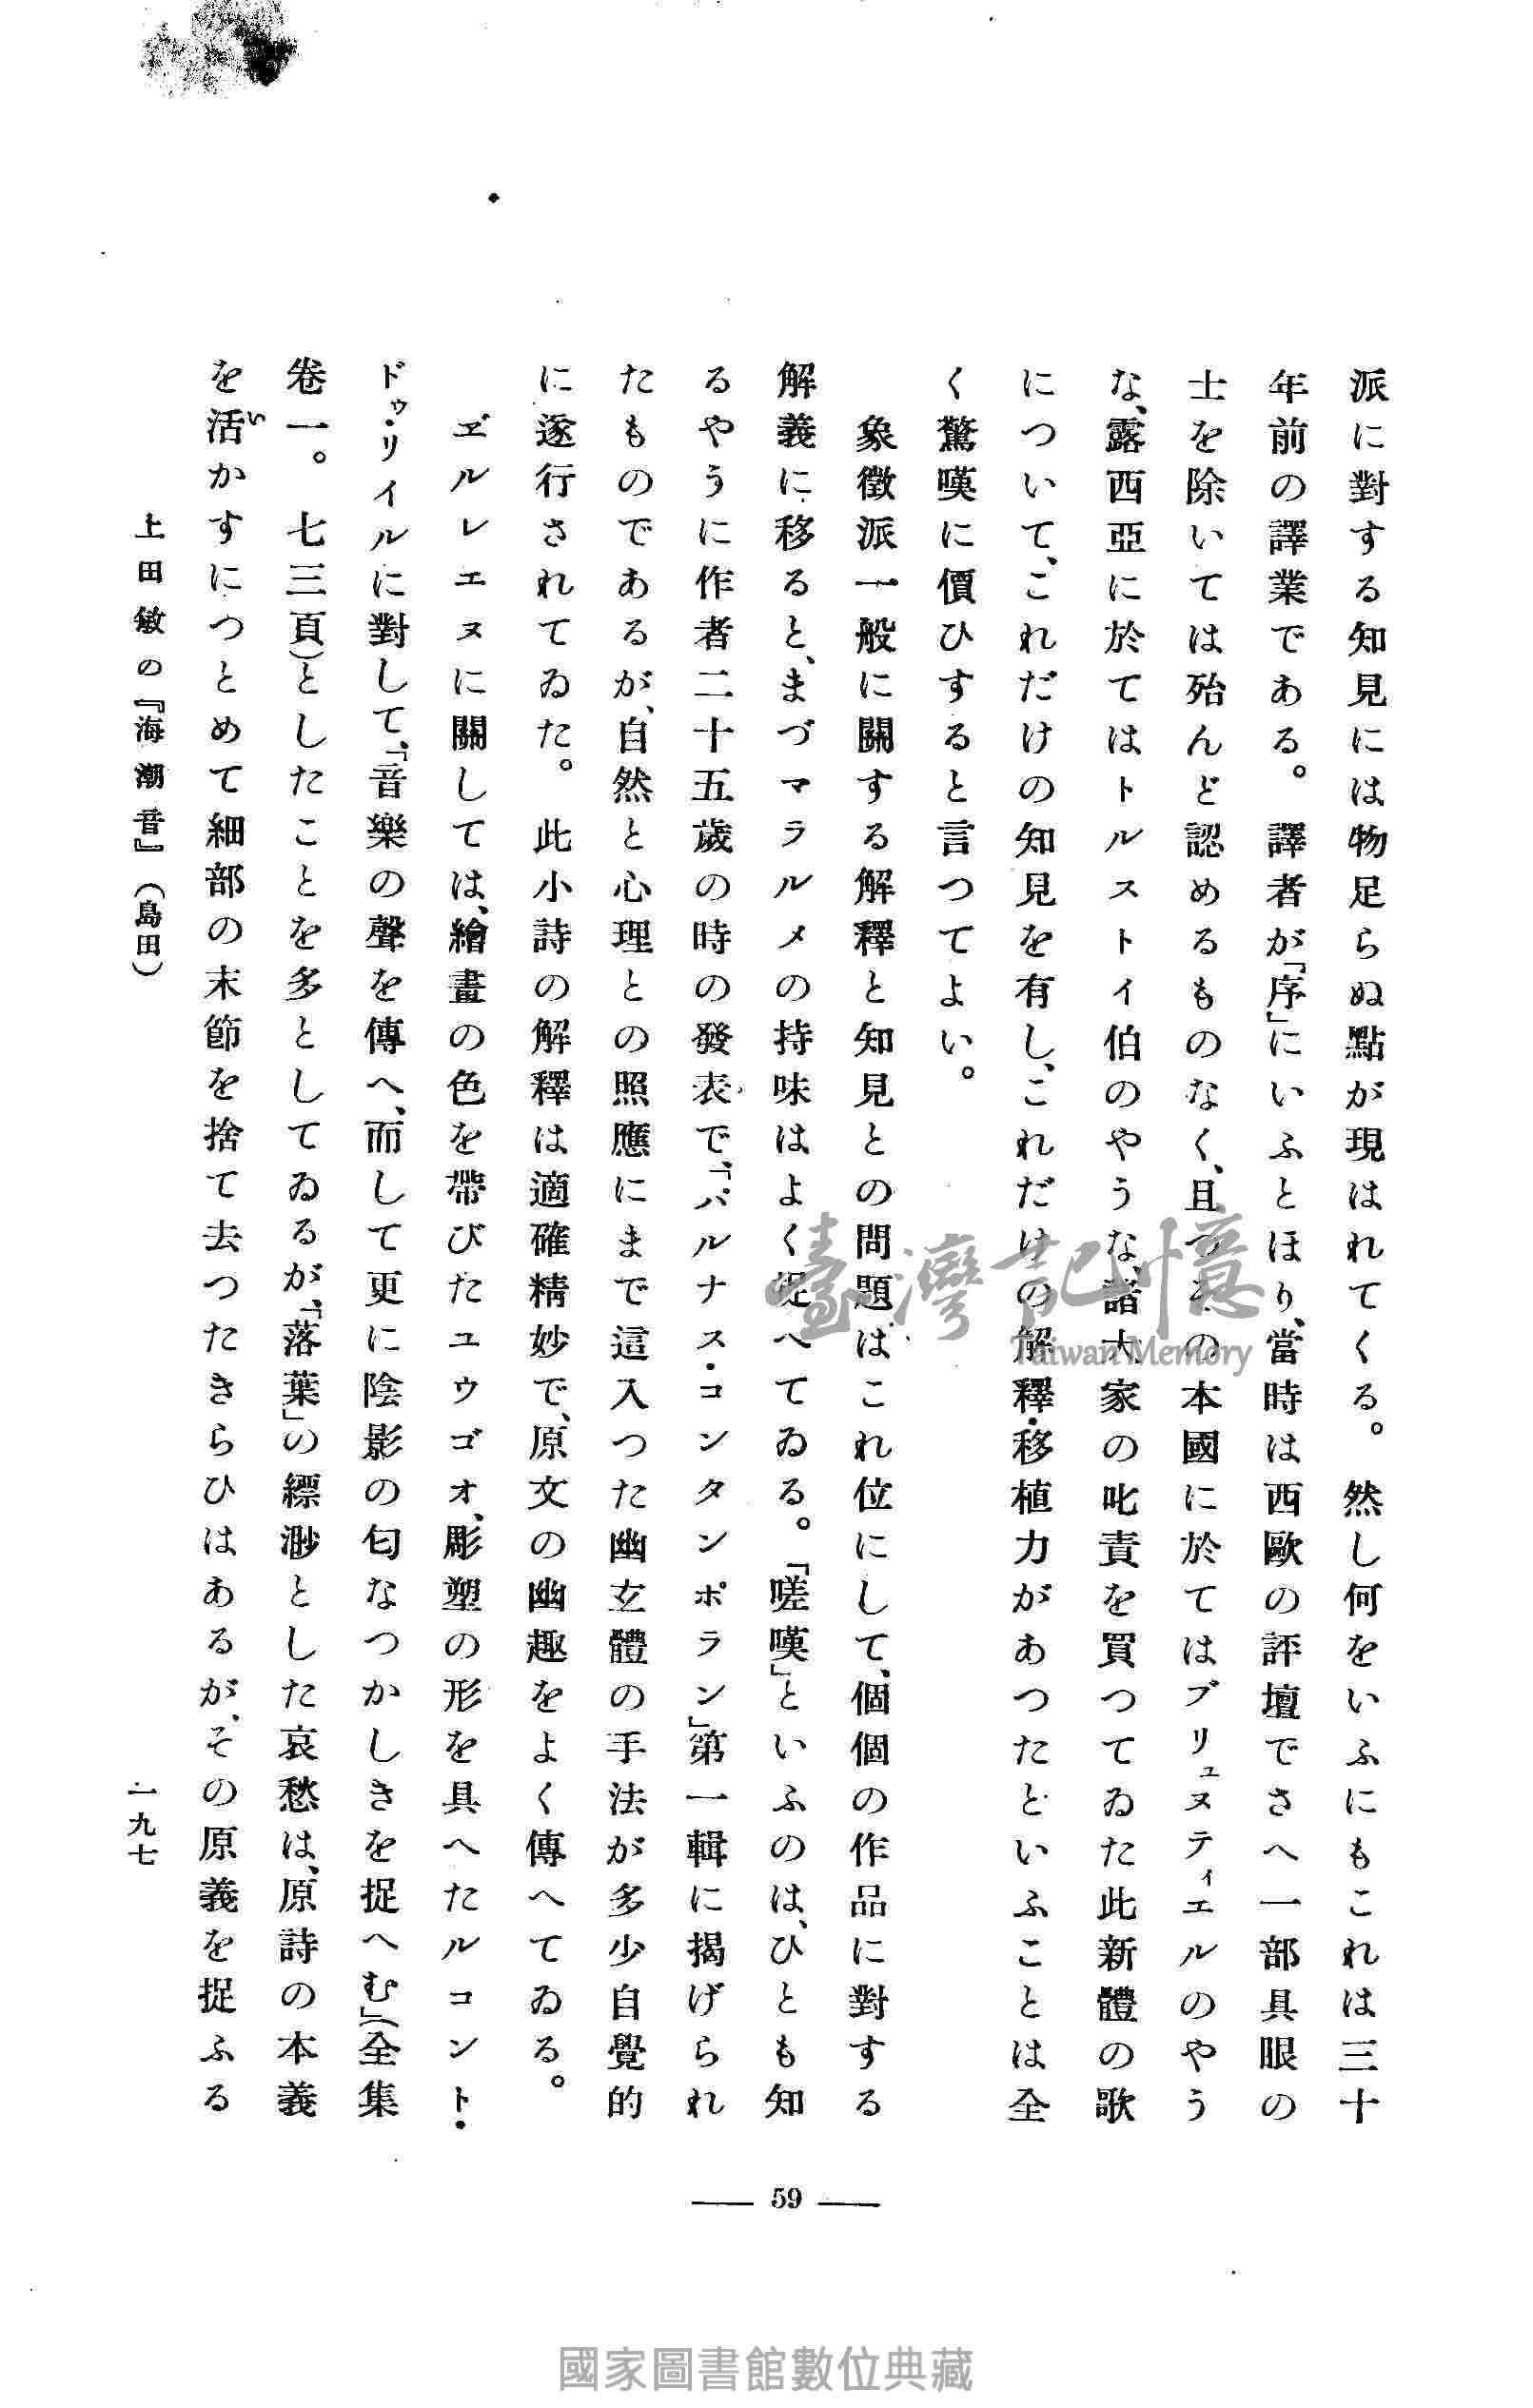 派に對する知見には物足らぬ點が現はれてくる。然し何をいふにもこれは三十
年前の譯業である。譯者が「序」にいふとほり、當時は西歐の評壇でさへ一部具眼の
士を除いては殆んど認めるものなく、且つその本國に於てはブリュヌティエルのやう
な、露西亞に於てはトルストイ伯のやうな、諸大家の叱責を買つてゐた此新體の歌
について、これだけの知見を有し、これだけの解釋・移植力があつたといふことは全
く驚嘆に價ひすると言つてよい。
象徵派一般に關する解釋と知見との問題はこれ位にして、個個の作品に對する
解義に移ると、まづマラルメの持味はよく捉へてゐる。「嗟嘆」といふのは、ひとも知
るやうに作者二十五歲の時の發表で、「パルナス・コンタンポラン」第一輯に揭げられ
たものであるが、自然と心理との照應にまで這入つた幽玄體の手法が多少自覺的
に遂行されてゐた。此小詩の解釋は適確精妙で、原文の幽趣をよく傳へてゐる。
ヹルレエヌに關しては、繪畫の色を帶びたユウゴオ、彫塑の形を具へたルコント・
ドゥ・リイルに對して、「音樂の聲を傳へ、而して更に陰影の匂なつかしきを捉へむ」(全集
卷一。七三頁)としたことを多としてゐるが、「落葉」の縹渺とした哀愁は、原詩の本義
を活かすにつとめて細部の末節を捨て去つたきらひはあるが、その原義を捉ふる
い
上田敏の『海潮音』(島田)
一九七
59
臺灣記憶
Taiwan Memory
國家圖書館數位典藏